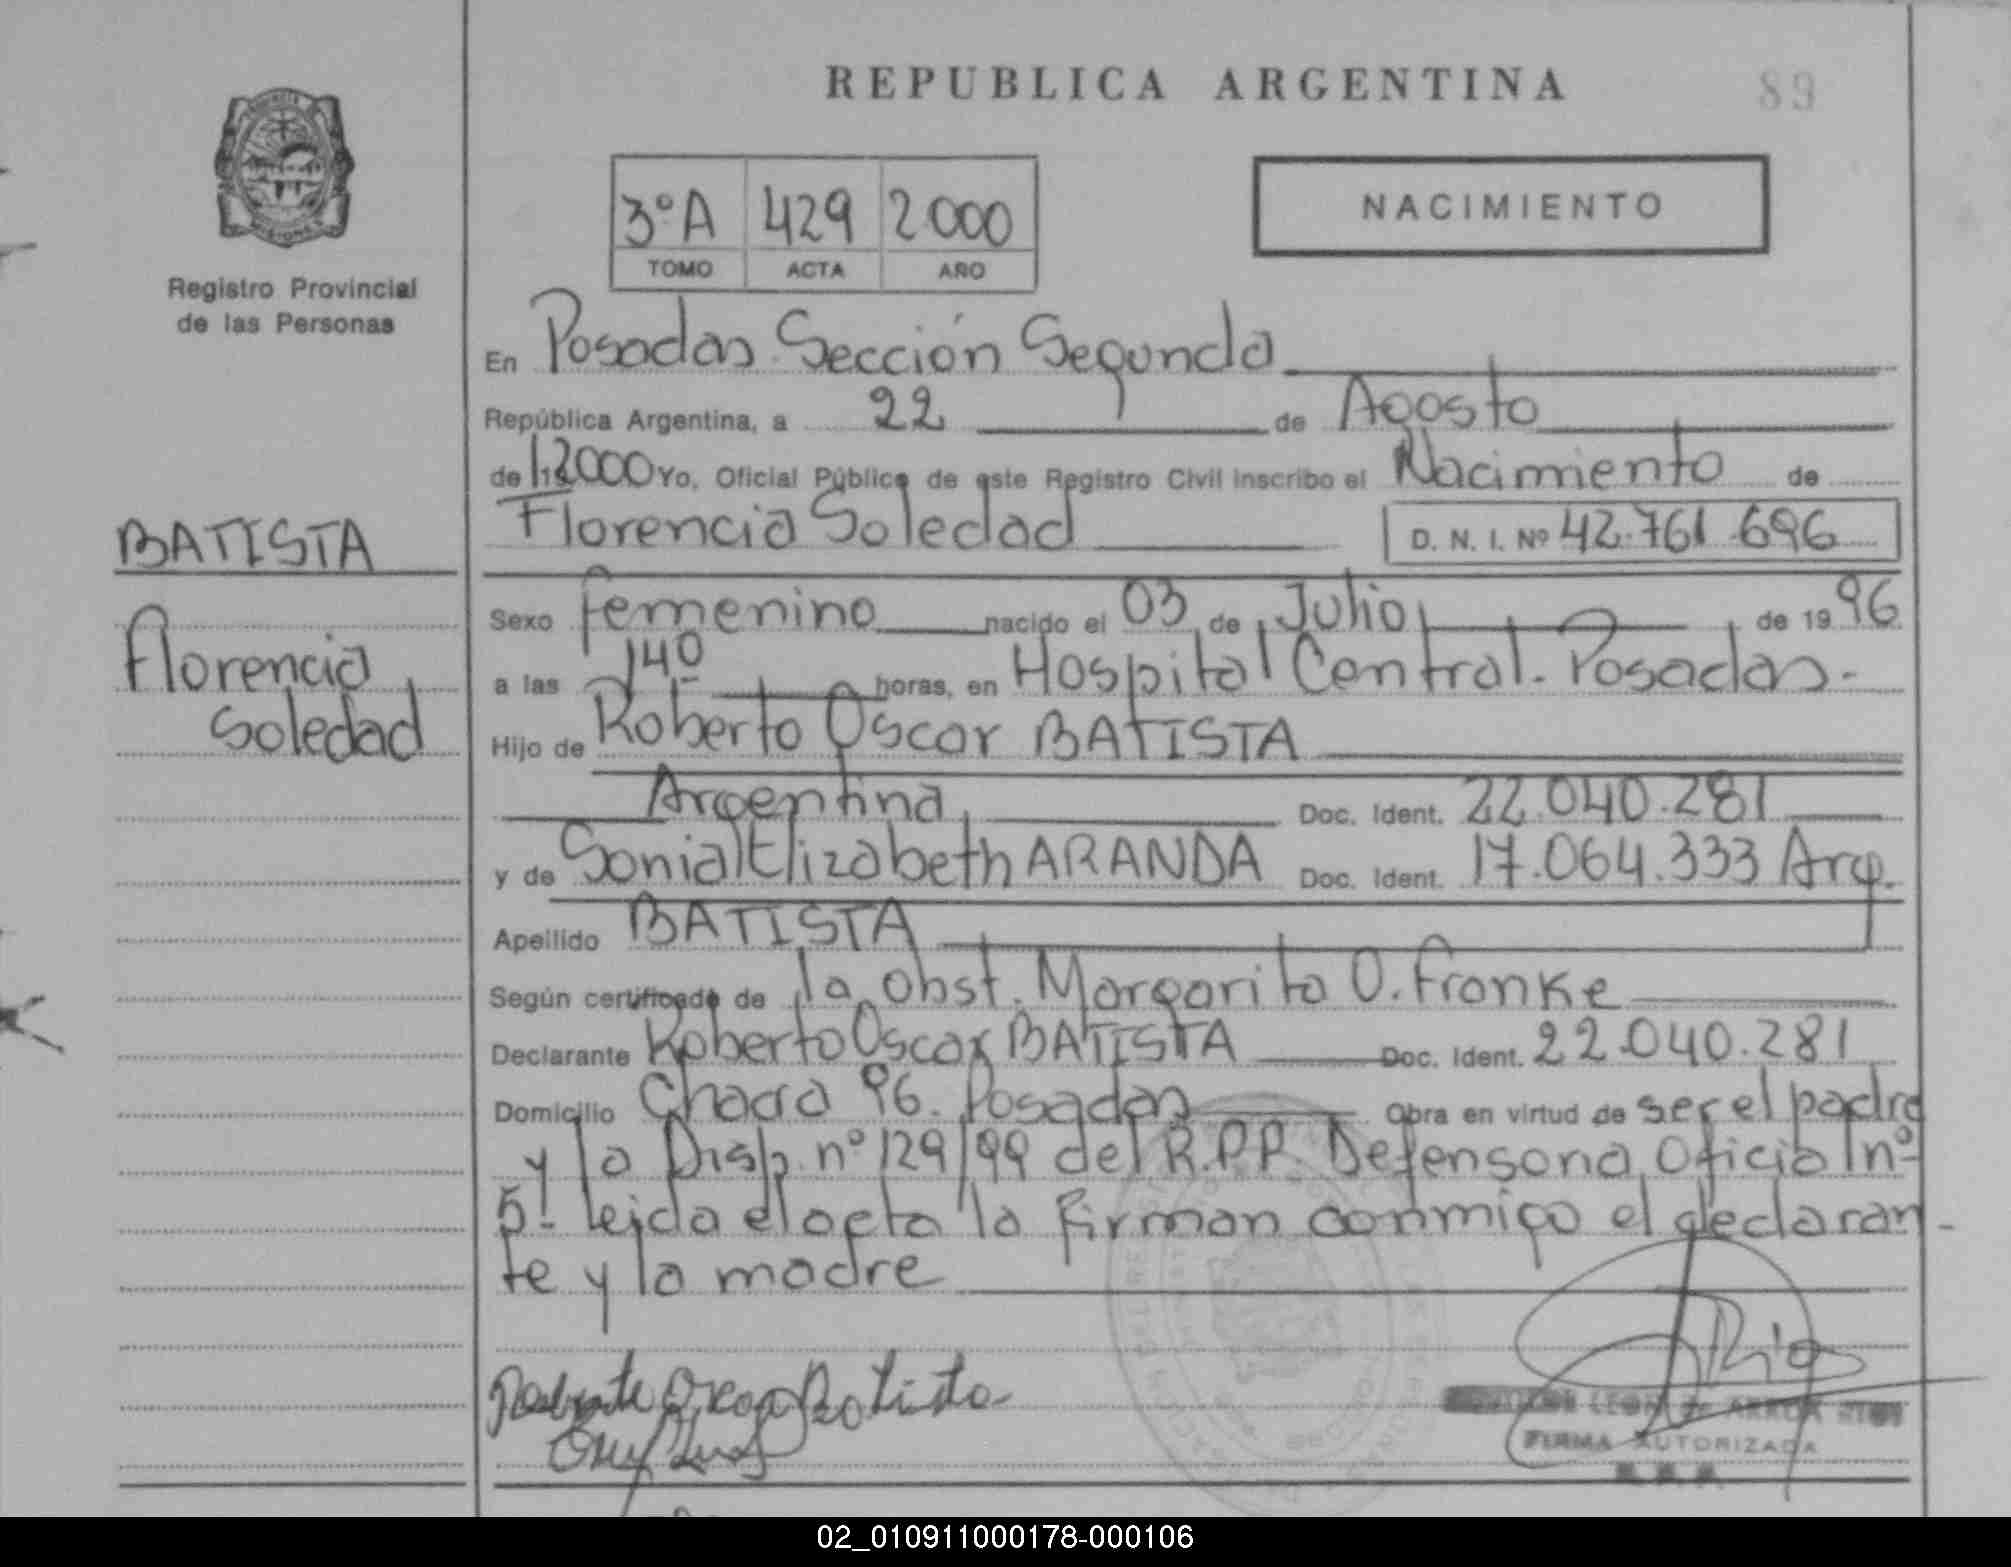 REPUBLICA ARGENTINA
89
Registro Provincial
de las Personas
3º A 429 2000
TOMO ACTA AÑO
NACIMIENTO
En Posadas Sección Segunda
República Argentina, a 22 de Agosto
de 2000 Yo, Oficial Público de este Registro Civil inscribo el Nacimiento de
Florencia Soledad D. N. I. Nº 42.761.696
BATISTA
Florencia
Soledad
Sexo femenino nacido el 03 de Julio de 1996
a las 14º horas, en Hospital Central - Posadas.-
Hijo de Roberto Oscar BATISTA
Argentina Doc. Ident. 22.040.281
y de Sonia Elizabeth ARANDA Doc. Ident. 17.064.333 Arg.
Apellido BATISTA
Según certificado de la Obst. Margarita O. Franke
Declarante Roberto Oscar BATISTA Doc. Ident. 22.040.281
Domicilio Chacra 96. Posadas Obra en virtud de ser el padre
y la Disp. nº 129/99 del R.P.P Defensoria Oficial nº
5! leida el acta la firman conmigo el declaran-
te y la madre
Roberto Oscar Batista
FIRMA AUTORIZADA
02_010911000178-000106